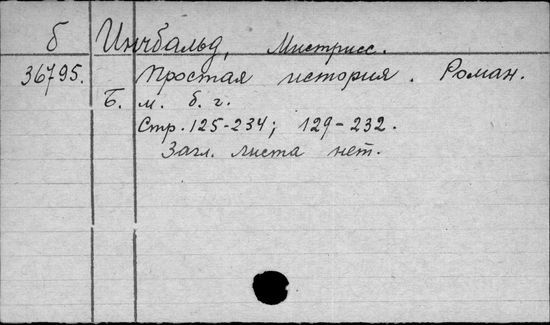 б Инчбальд, Мистрисс.
36795. Простая история. Роман.
Б. м. б. г.
Стр. 125-234; 129-232.
Загл. листа нет.